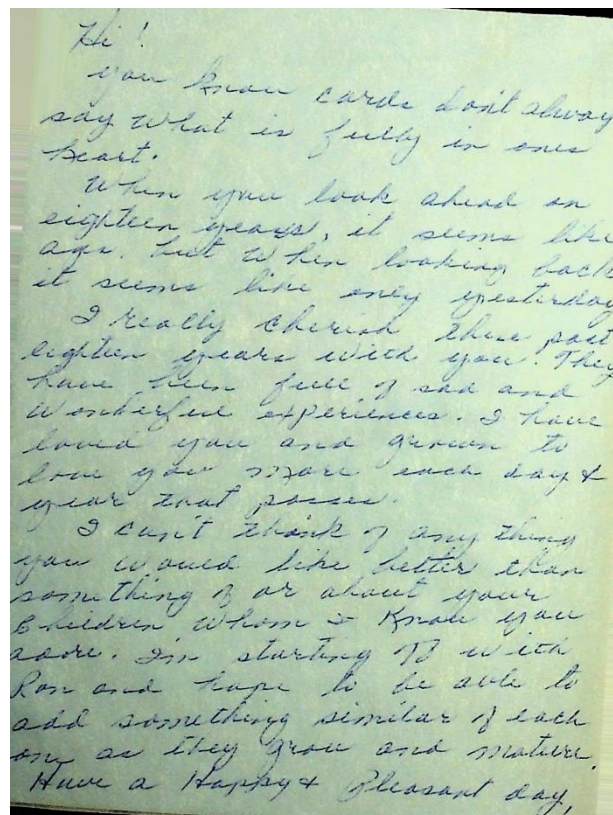 Hi!
you know cards don't alway
say what is fully in ones
heart.
When you look ahead on
eighteen years, it seems like
ags. but when looking back
it seems like only yesterday
I really cherish these past
eighteen years with you. They
have been full of sad and
wonderful experiences. I have
loved you and grown to
love you more each day &
year that passes.
I can't think of any thing
you would like better than
something of or about your
children whom I know you
adore. I'm starting off with
Ron and hope to be able to
add something similar of each
one as they grow and mature.
Have a Happy & Pleasant day,